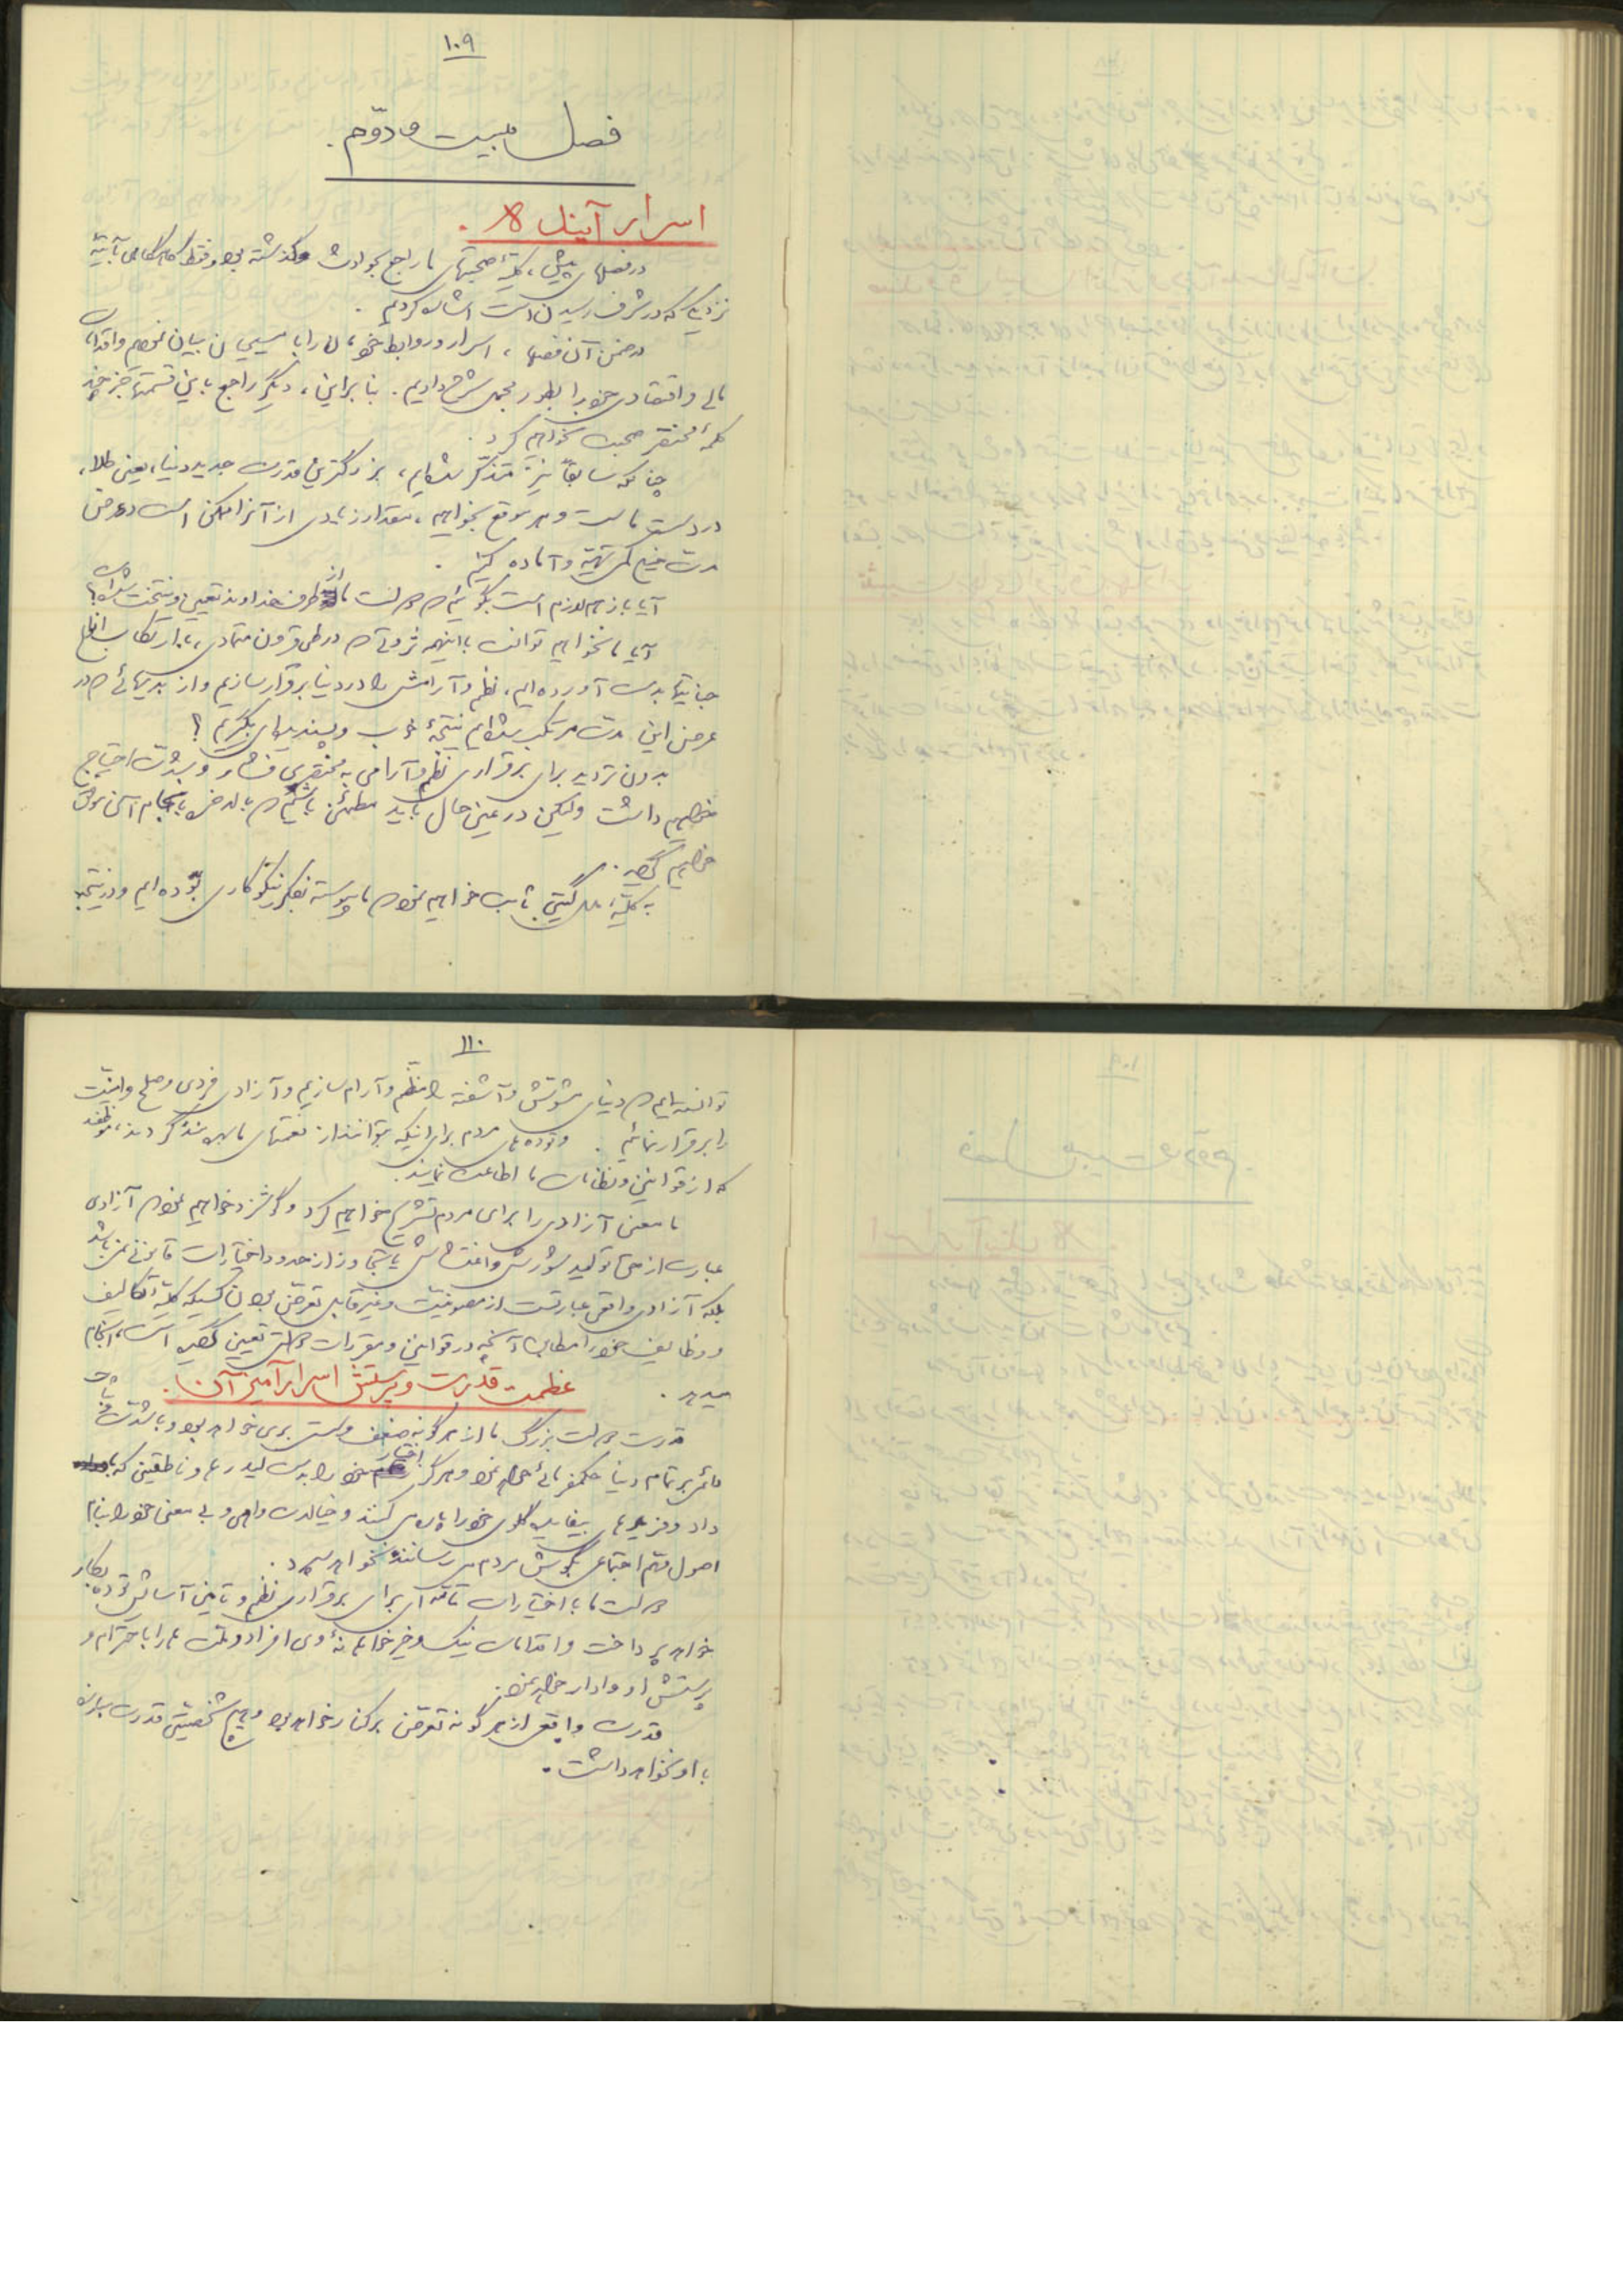 ۱۰۹
فصل بیست و دوّم.
اسرار آینده.
در فصلهای پیش، کلیّهٔ صحبتهای ما راجع بحوادث گذشته بود و فقط گاه گاهی بآتیّهٔ
نزدیکی که در شرف رسیدن است اشاره کردیم.
در ضمن آن فصلها، اسرار و روابط خودمان را با مسیحیان بیان نمودیم و اقدامات
مالی و اقتصادی خود را بطور مجمل شرح دادیم. بنابراین، دیگر راجع باین قسمتها جز چند
کلمهٔ مختصر صحبت نخواهیم کرد.
چنانکه سابقاً نیز متذکّر شده‌ایم، بزرگترین قدرت جدید دنیا، یعنی طلا،
در دست ماست و هر موقع بخواهیم، مقدار زیادی از آنرا ممکن است در عرض
مدت خیلی کمی تهیّه و آماده کنیم.
آیا باز هم لازم است بگوئیم که دولت ما از طرف خداوند تعیین و منتخب شده است؟
آیا ما نخواهیم توانست با اینهمه ثروتی که در طی قرون متمادی، با ارتکاب انواع
جنایتها بدست آورده‌ایم، نظم و آرامش را در دنیا برقرار سازیم و از بدیهائی که در
عرض این مدت مرتکب شده‌ایم نتیجهٔ خوب و پسندیده‌ای بگیریم؟
بدون تردید برای برقراری نظم و آرامی به مختصری فشار و شدّت احتیاج
خواهیم داشت ولیکن در عین حال باید مطمئن باشیم که بالاخره بانجام آن موفق
خواهیم گردید.
به کلیّهٔ گیتی ثابت خواهیم نمود که ما پیوسته بفکر نیکوکاری بوده‌ایم و در نتیجه
۱۱۰
توانسته‌ایم که دنیای مشوّش و آشفته را منظّم و آرام سازیم و آزادی فردی و صلح و امنیّت
را برقرار نمائیم. و توده‌های مردم برای اینکه بتوانند از نعمتهای ما بهره‌مند گردند، موظفند
که از قوانین و نظامات ما اطاعت نمایند.
ما معنی آزادی را برای مردم تشریح خواهیم کرد و گوشزد خواهیم نمود که آزادی
عبارت از حق تولید شورش و اغتشاش یا تجاوز از حدود و اختیارات قانونی نمی‌باشد
بلکه آزادی واقعی عبارتست از مصونیّت و غیرقابل تعرّض بودن کسیکه کلیّهٔ تکالیف
و وظایف خود را مطابق آنچه در قوانین و مقررات دولتی تعیین گردیده است، انجام
میدهد.
عظمت قدرت و پرستش اسرارآمیز آن.
قدرت دولت بزرگ ما از هر گونه ضعف و سستی بری خواهد بود و با شدّت
بر تمام دنیا حکمفرمائی خواهد نمود و هرگز اختیار خود را بدست لیدرها و ناطقینی که با
داد و فریادهای بیفایده گلوی خود را پاره می‌کنند و خیالات واهی و بی معنی خود را بنام
اصول مهم اجتماعی بگوش مردم می‌رسانند نخواهد سپرد.
دولت ما با اختیارات تامّه‌ای برای برقراری نظم و تامین آسایش توده، بکار
خواهد پرداخت و اقدامات نیک و خیرخواهانهٔ وی افراد و ملت‌ها را باحترام و
پرستش او وادار خواهد نمود.
قدرت واقعی از هر گونه تعرّض برکنار خواهد بود و هیچ شخصیتی قدرت برابری
با او نخواهد داشت.